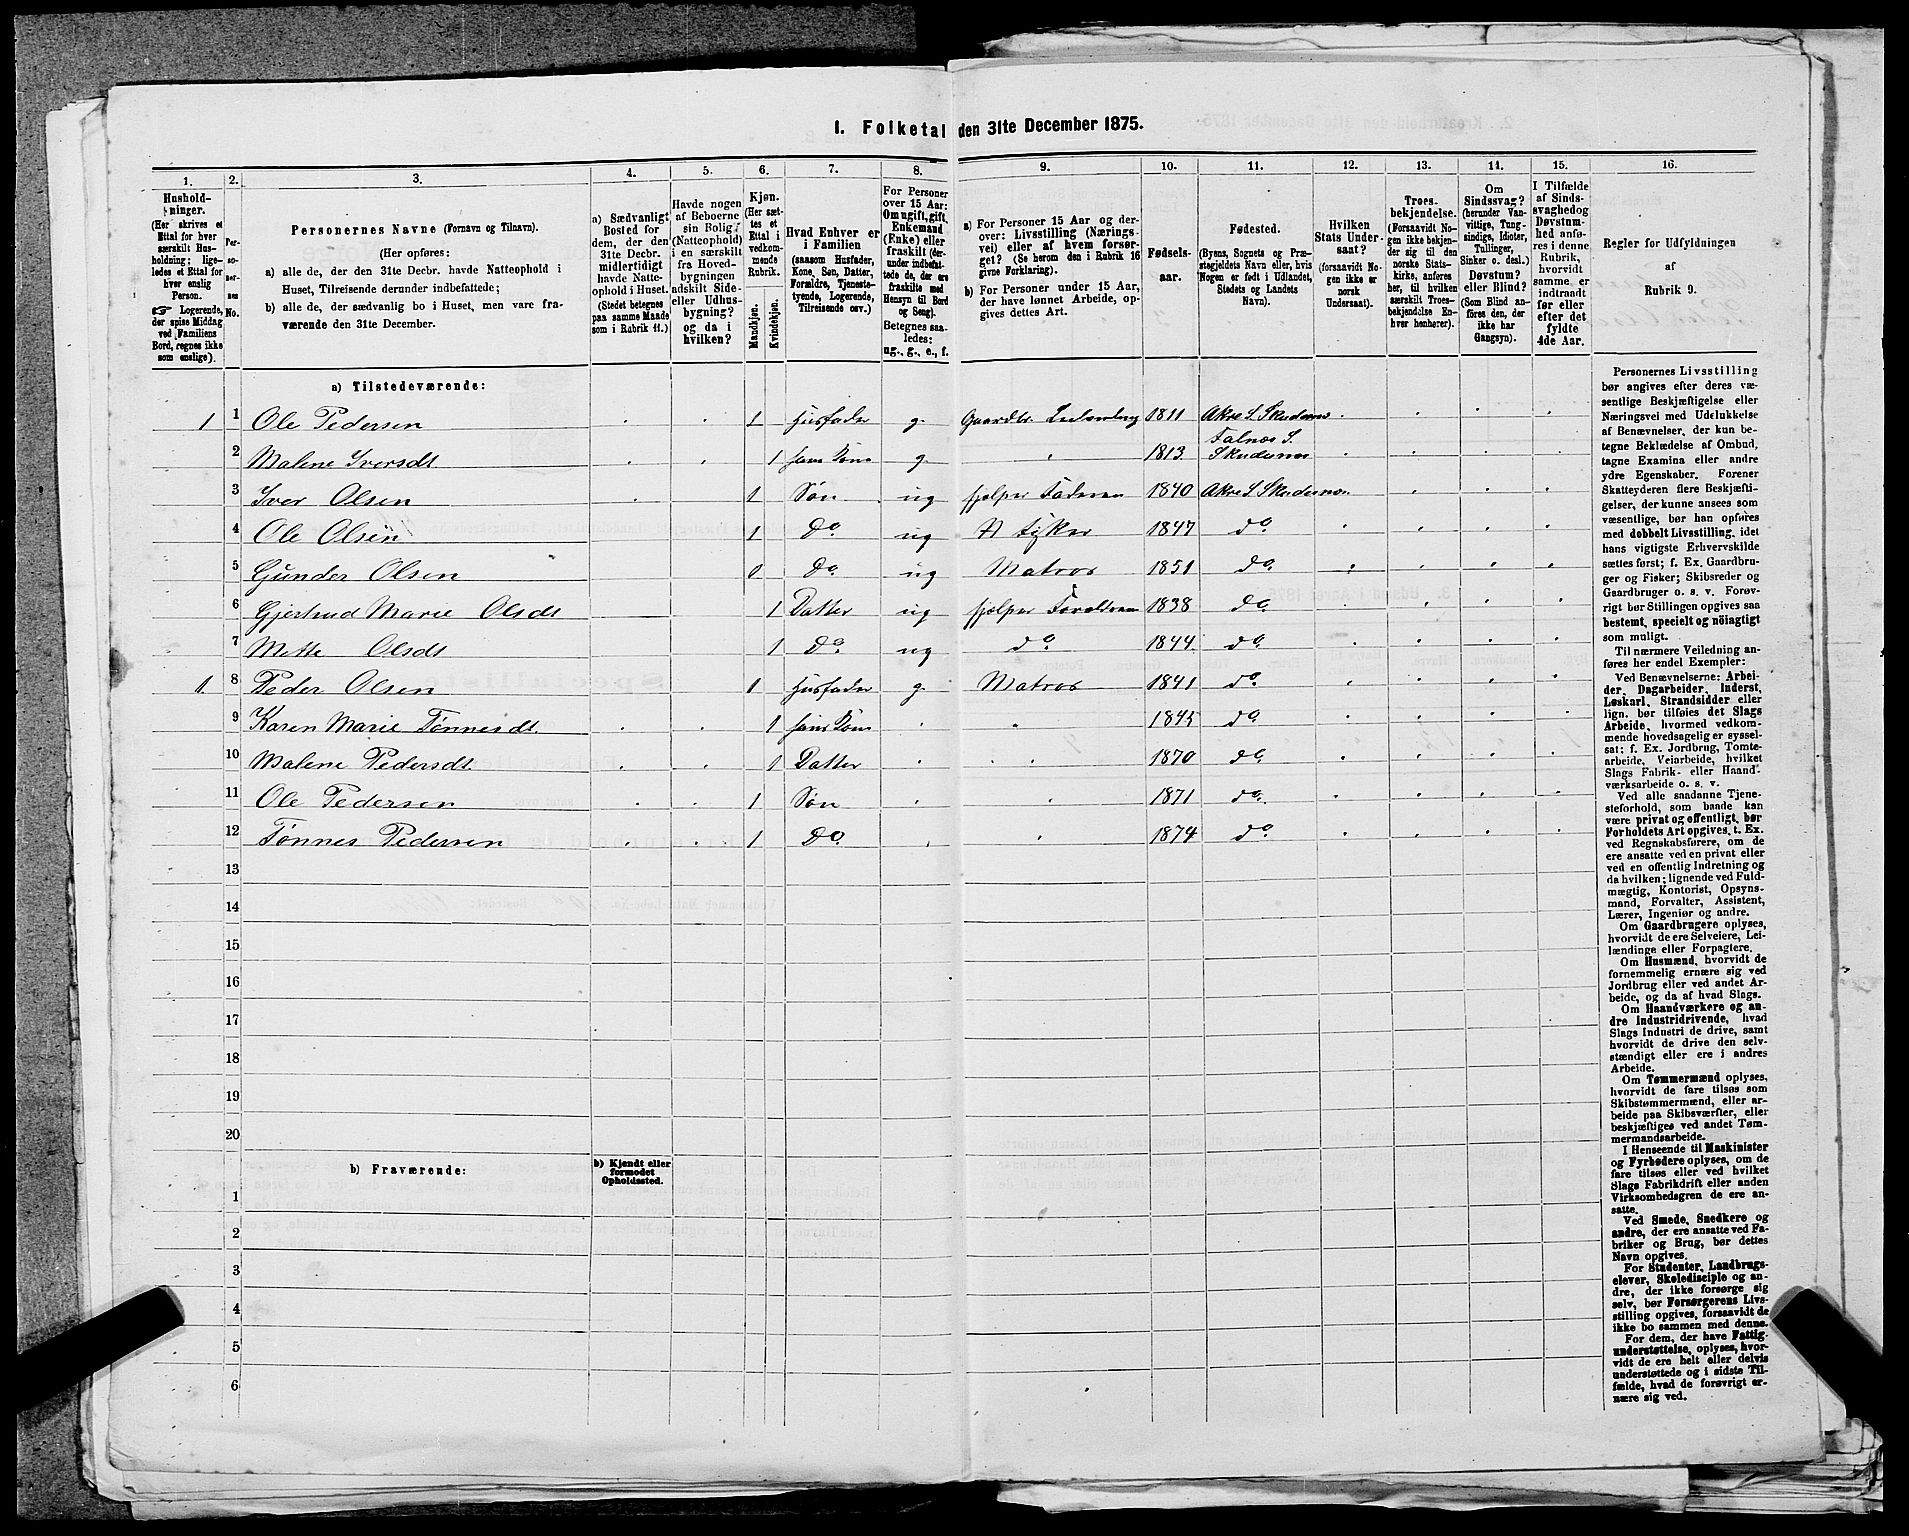 I. Folketal den 31te December 1875.
1. 2. 3. 4. 5. 6. 7. 8. 9. 10. 11. 12. 13. 14. 15. 16.
Hushold-
ninger.
(Her skrives et
Ettal for hver
særskilt Hus-
holdning; lige-
ledes et Ettal for
hver enslig
Person.
☞ Logerende,
der spise Middag
ved Familiens
Bord, regnes ikke
som enslige).
Per-
so-
ner-
nes
No.
Personernes Navne (Fornavn og Tilnavn).
(Her opføres:
a) alle de, der den 31te Decbr. havde Natteophold i
Huset, Tilreisende derunder indbefattede;
b) alle de, der sædvanlig bo i Huset, men vare fra-
værende den 31te December.
a) Sædvanligt
Bosted for
dem, der den
31te Decbr.
midlertidigt
havde Natte-
ophold i Huset.
(Stedet betegnes
paa samme Maade
som i Rubrik 11.)
Havde nogen
af Beboerne
sin Bolig
(Natteophold)
i en særskilt
fra Hoved-
bygningen
adskilt Side-
eller Udhus-
bygning?
og da i
hvilken?
Kjøn.
(Her sæt-
tes et
Ettal i
vedkom-
mende
Rubrik.
Mandkjøn.
Kvindekjøn.
Hvad Enhver er
i Familien
(saasom Husfader,
Kone, Søn, Datter,
Forældre, Tjeneste-
tyende, Logerende,
Tilreisende osv.)
For Personer
over 15 Aar:
Om ugift, gift,
Enkemand
(Enke) eller
fraskilt (der-
under indbefat-
tede de, der ere
fraskilte med
Hensyn til Bord
og Seng).
Betegnes saa-
ledes:
ug., g., e., f.
a) For Personer 15 Aar og der-
over: Livsstilling (Nærings-
vei) eller af hvem forsør-
get? (Se herom den i Rubrik 16
givne Forklaring).
b) For Personer under 15 Aar,
der have lønnet Arbeide, op-
gives dettes Art.
Fødsels-
aar.
Fødested.
(Byens, Sognets og Præ-
stegjeldets Navn eller, hvis
Nogen er født i Udlandet,
Stedets og Landets
Navn).
Hvilken
Stats Under-
saat?
(forsaavidt No-
gen ikke er
norsk
Undersaat).
Troes-
bekjendelse.
(Forsaavidt No-
gen ikke bekjen-
der sig til den
norske Stats-
kirke, anføres
her, til hvilken
særskilt Troes-
bekjendelse En-
hver henhører).
Om
Sindssvag?
(herunder Van-
vittige, Tung-
sindige, Idioter,
Tullinger,
Sinker o. desl.)
Døvstum?
eller Blind?
(Som Blind an-
føres den, der
ikke har
Gangsyn).
I Tilfælde
af Sinds-
svaghed og
Døvstum-
hed anfø-
res i denne
Rubrik,
hvorvidt
samme er
indtraadt
før eller
efter det
fyldte
4de Aar.
Regler for Udfyldningen
af
Rubrik 9.
a) Tilstedeværende:
1 1 Ole Pedersen 1 Husfader g. Gaardbr. 1811 Akre S. Skudenes
2 Malene Iversdt 1 hans Kone g. 1813 Falnæs S. Skudenes
3 Iver Olsen 1 Søn ug hjelper Faderen 1840 Akre S Skudenes
4 Ole Olsen 1 Do. ug Fisker 1847 do.
5 Gunder Olsen Do. ug Matros 1851 do.
6 Gjertrud Marie Olsdt 1 Datter ug hjelper Forældrene 1838 do.
7 Mette Olsdt 1 Do. ug do. 1844 do.
1. 8 Peder Olsen 1 Husfader g. Matros 1841 do.
9 Karen Marie Tønnesdt. 1 hans Kone 1845 do.
10 Malene Pedersdt. 1 Datter 1870 do.
11 Ole Pedersen 1 Søn 1871 do.
12 Tønnes Pedersen 1 Do. 1874 do.
13
14
15
16
17
18
19
20
b) Fraværende:
b) Kjendt eller
formodet
Opholdssted.
1
2
3
4
5
6
Personernes Livsstilling
bør angives efter deres væ-
sentlige Beskjæftigelse eller
Næringsvei med Udelukkelse
af Benævnelser, der kun be-
tegne Beklædelse af Ombud,
tagne Examina eller andre
ydre Egenskaber. Forener
Skatteyderen flere Beskjæfti-
gelser, der kunne ansees som
væsentlige, bør han opføres
med dobbelt Livsstilling, idet
hans vigtigste Erhvervskilde
sættes først; f. Ex. Gaardbru-
ger og Fisker; Skibsreder og
Gaardbruger o. s. v. Forøv-
rigt bør Stillingen opgives saa
bestemt, specielt og nöiagtigt
som muligt.
Til nærmere Veiledning an-
føres her endel Exempler:
Ved Benævnelserne: Arbei-
der, Dagarbeider, Inderst,
Løskarl, Strandsidder eller
lign. bør tilføies det Slags
Arbeide, hvormed vedkom-
mende hovedsagelig er syssel-
sat; f. Ex. Jordbrug, Tomte-
arbeide, Veiarbeide, hvilket
Slags Fabrik- eller Haand-
værksarbeide o. s. v.
Ved alle saadanne Tjene-
steforhold, som baade kan
være privat og offentligt, bør
Forholdets Art opgives, t. Ex.
ved Regnskabsførere, om de
ere ansatte ved en privat eller
ved en offentlig Indretning og
da hvilken; lignende ved Fuld-
mægtig, Kontorist, Opsyns-
mand, Forvalter, Assistent,
Lærer, Ingeniør og andre.
Om Gaardbrugere oplyses,
hvorvidt de ere Selveiere, Lei-
lændinge eller Forpagtere.
Om Husmænd, hvorvidt de
fornemmelig ernære sig ved
Jordbrug eller ved andet Ar-
beide, og da af hvad Slags.
Om Haandværkere og an-
dre Industridrivende, hvad
Slags Industri de drive, samt
hvorvidt de drive den selv-
stændigt eller ere i andres
Arbeide.
Om Tømmermænd oplyses,
hvorvidt de fare tilsøs som
Skibstømmermænd, eller ar-
beide paa Skibsværfter, eller
beskjæftiges ved andet Tøm-
mermandsarbeide.
I Henseende til Maskinister
og Fyrbødere oplyses, om de
fare tilsøs eller ved hvilket
Slags Fabrikdrift eller anden
Virksomhedsgren de ere an-
satte.
Ved Smede, Snedkere og
andre, der ere ansatte ved Fa-
briker og Brug, bør dettes
Navn opgives.
For Studenter, Landbrugs-
elever, Skoledisciple og an-
dre, der ikke forsørge sig
selv, bør Forsørgerens Livs-
stilling opgives, forsaavidt de
ikke bo sammen med denne.
For dem, der have Fattig-
understøttelse, oplyses, hvor-
vidt de ere helt eller delvis
understøttede og i sidste Til-
fælde, hvad de forøvrigt er-
nære sig ved.